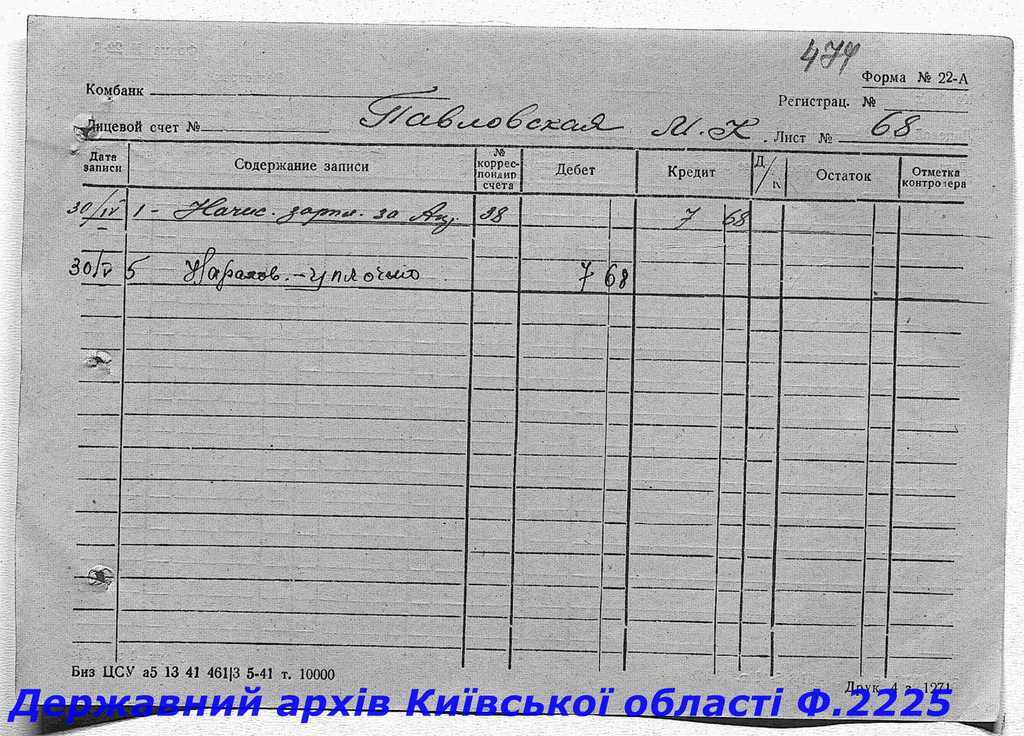 474
Форма № 22-А
Комбанк
Регистрац. №
Лицевой счет № Павловская М. К. Лист № 68
Дата записи Содержание записи № коррес-пондир счета Дебет Кредит Д/К Остаток Отметка контролера
30/IV 1 - Начис. зарпл. за 38 7 68
30/V 5 уплочено 7 68
Биз ЦСУ а5 13 41 461|3 5-41 т. 10000
Друк. 4 з. 1271
Державний архів Київської області Ф.2225